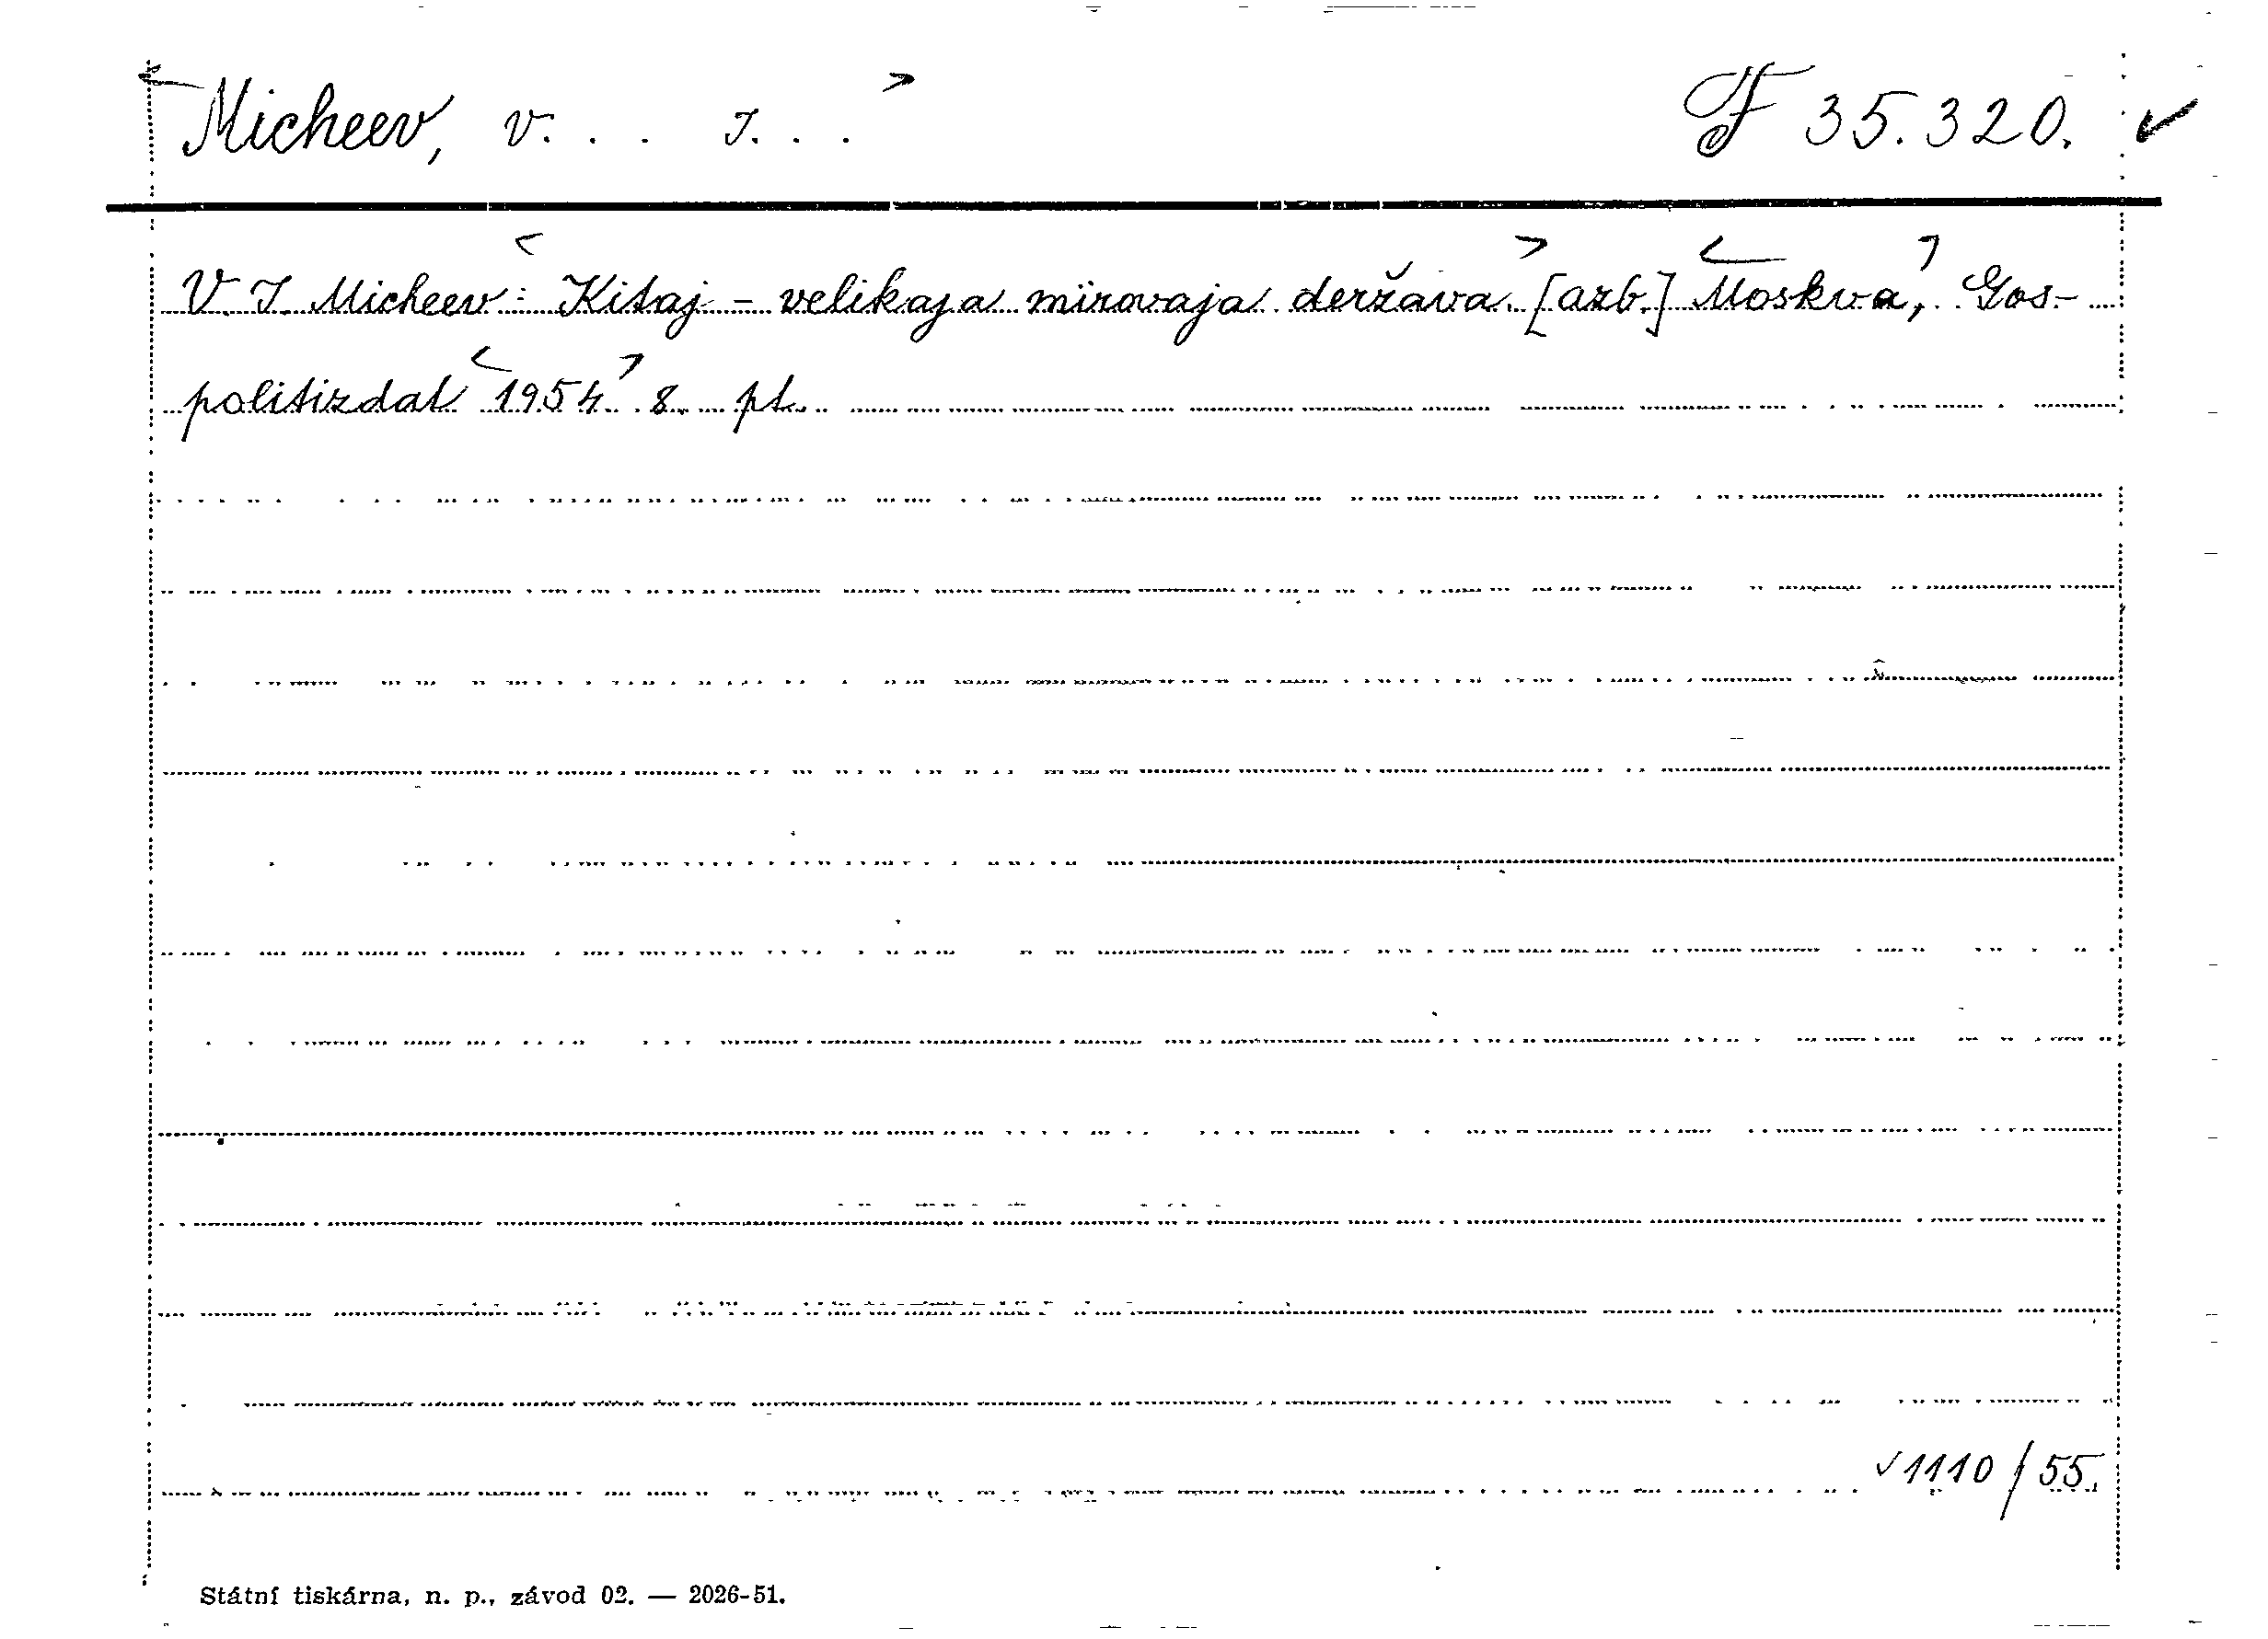 Micheev, V. . . I. . . F 35.320. ✓
V. I. Micheev: Kitaj - velikaja mirovaja deržava [azb.] Moskva, Gos-
politizdat 1954. 8. pt.
✓1110/55.
Státní tiskárna, n. p., závod 02. — 2026-51.